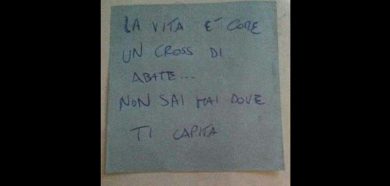 LA VITA E' COME
UN CROSS DI
ABATE...
NON SAI MAI DOVE
TI CAPITA